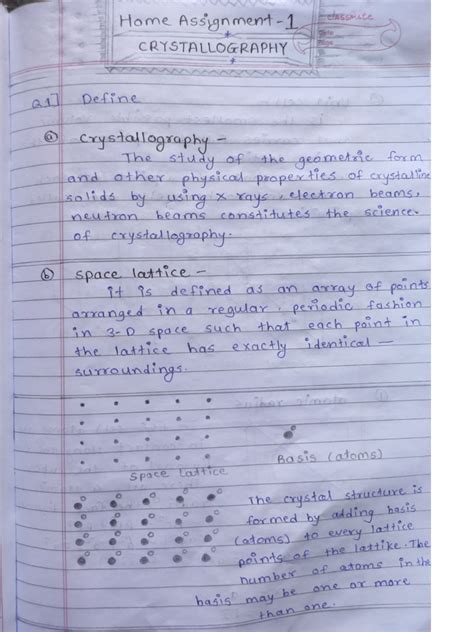 Home Assignment-1
classmate
Date
Page
CRYSTALLOGRAPHY
Q1] Define
(a) Crystallography -
The study of the geometric form
and other physical properties of crystalline
solids by using x rays, electron beams,
neutron beams constitutes the science.
of crystallography.
(b) Space lattice -
it is defined as an array of points
arranged in a regular, periodic fashion
in 3-D space such that each point in
the lattice has exactly identical —
surroundings.
Basis (atoms)
Space lattice
The crystal structure is
formed by adding basis
(atoms) to every lattice
points of the lattike. The
number of atoms in the
basis may be one or more
than one.